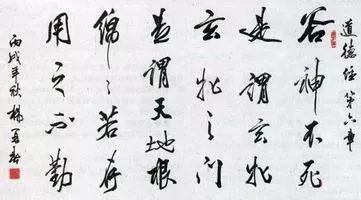 道德经第六章
谷神不死
是謂玄牝
玄牝之门
是謂天地根
綿々若存
用之不勤
丙戌年秋